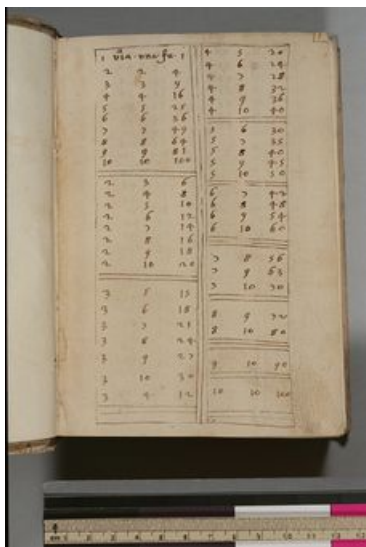 1 via una fa 1
2 2 4
3 3 9
4 4 16
5 5 25
6 6 36
7 7 49
8 8 64
9 9 81
10 10 100
2 3 6
2 4 8
2 5 10
2 6 12
2 7 14
2 8 16
2 9 18
2 10 20
3 5 15
3 6 18
3 7 21
3 8 24
3 9 27
3 10 30
3 4 12
4 5 20
4 6 24
4 7 28
4 8 32
4 9 36
4 10 40
5 6 30
5 7 35
5 8 40
5 9 45
5 10 50
6 7 42
6 8 48
6 9 54
6 10 60
7 8 56
7 9 63
7 10 70
8 9 72
8 10 80
9 10 90
10 10 100